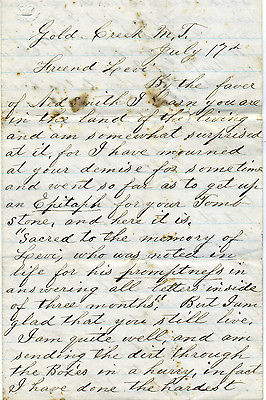 Gold Creek M.T.
July 17th
Freend Levi
By the faver
of Ned Smith I learn you are
in the land of the living
and am somewhat surprised
at it, for I have mourned
at your demise for sometime
and went so far as to get up
an Epitaph for your Tomb
Stone, and here it is.
"Sacred to the memory of
Levi, who was noted in
life for his promptness in
answering all letters inside
of three months." But I am
glad that you still live.
I am quite well, and am
sending the dirt through
the Boxes in a hurry, infact
I have done the hardest